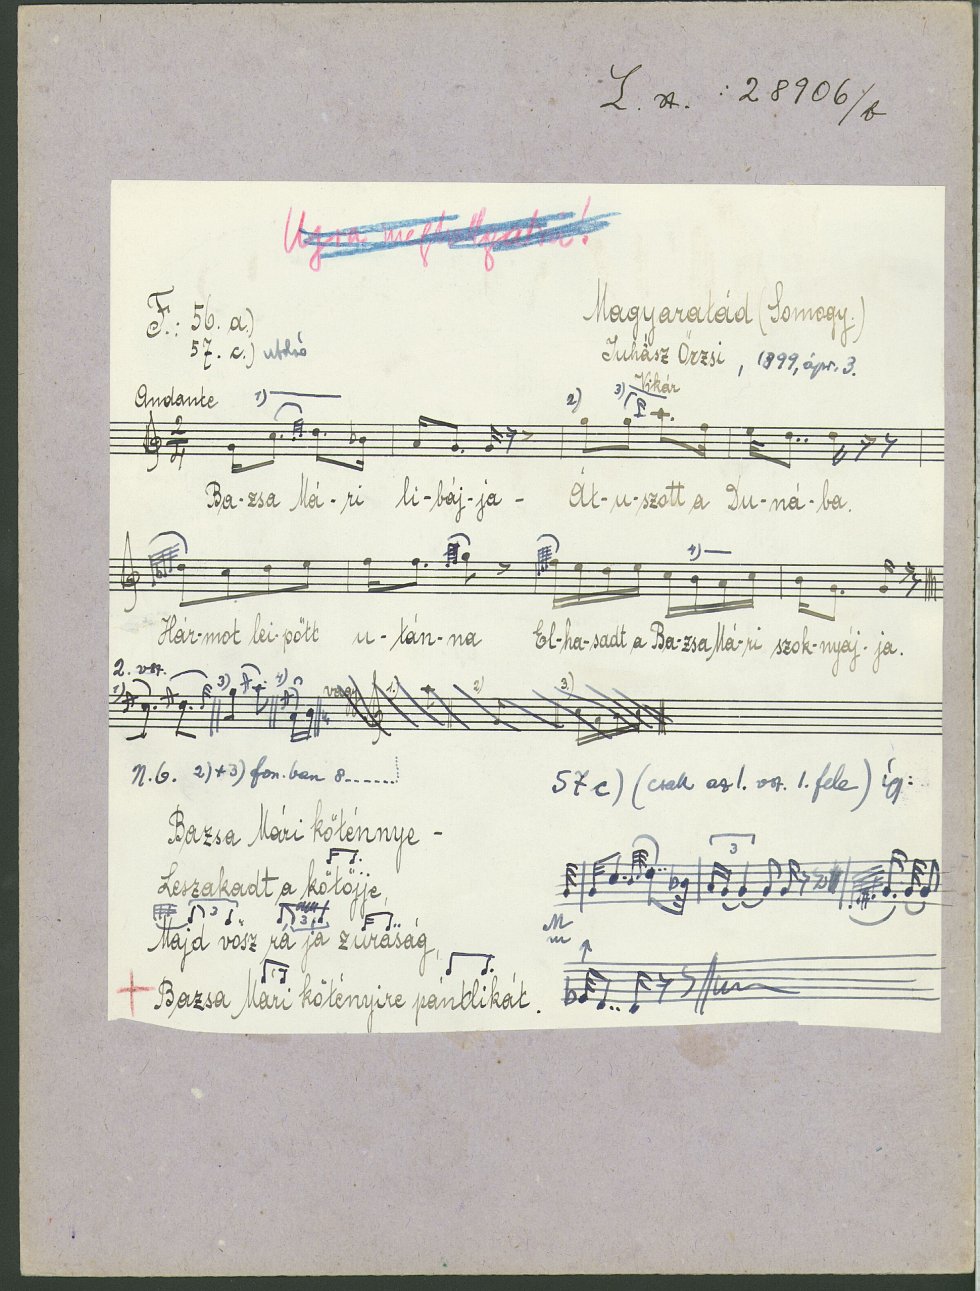 L. sz. : 28906/b
Ujra meghallgatni!
F.: 56. a.)
57. c.) utolsó
Magyaratád (Somogy.)
Juhász Őrzsi, 1899, ápr. 3.
Vikár
Andante
1) 2) 3)
2/4
Ba-zsa Má-ri li-báj-ja - Át-u-szott a Du-ná-ba.
4)
Hár-mot lei-pött u-tán-na El-ha-sadt a Ba-zsa Má-ri szok-nyáj-ja.
2. vsz.
1) 3) 4) vagy 1.) 2) 3.)
N.b. 2)+3) fon.ban 8......
57 c) (csak az 1. vsz. 1. fele) így:
Bazsa Mári köténnye -
Leszakadt a kötőjje,
3
3 3
Majd vösz rá ja zuraság,
Bazsa Mári kötényire pántlikát.